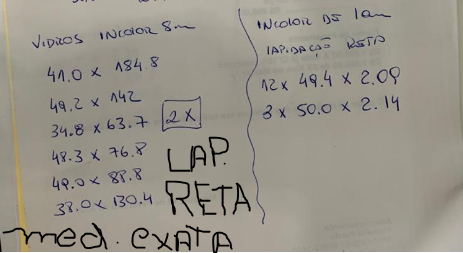 VIDROS INCOLOR 8m
41.0 x 184.8
49.2 x 142
34.8 x 63.7
2x
48.3 x 76.8
49.0 x 88.8
38.0 x 130.4
LAP.
RETA
med. exATA
INCOLOR DE 1cm
LAPIDAÇÃO RETA
12x 49.4 x 2.09
3x 50.0 x 2.14